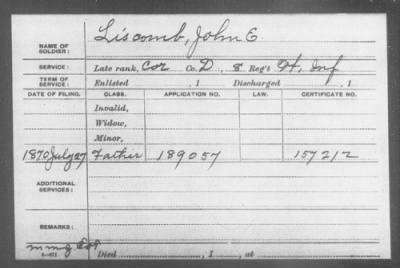 NAME OF SOLDIER: Liscomb, John E.
SERVICE: Late rank, Cor Co. D, 8 Reg't Inf
TERM OF SERVICE: Enlisted , 1 Discharged , 1
DATE OF FILING. CLASS. APPLICATION NO. LAW. CERTIFICATE NO.
Invalid,
Widow,
Minor,
1870 July 27 Father 189057 157212
ADDITIONAL SERVICES:
REMARKS:
Died , 1 , at